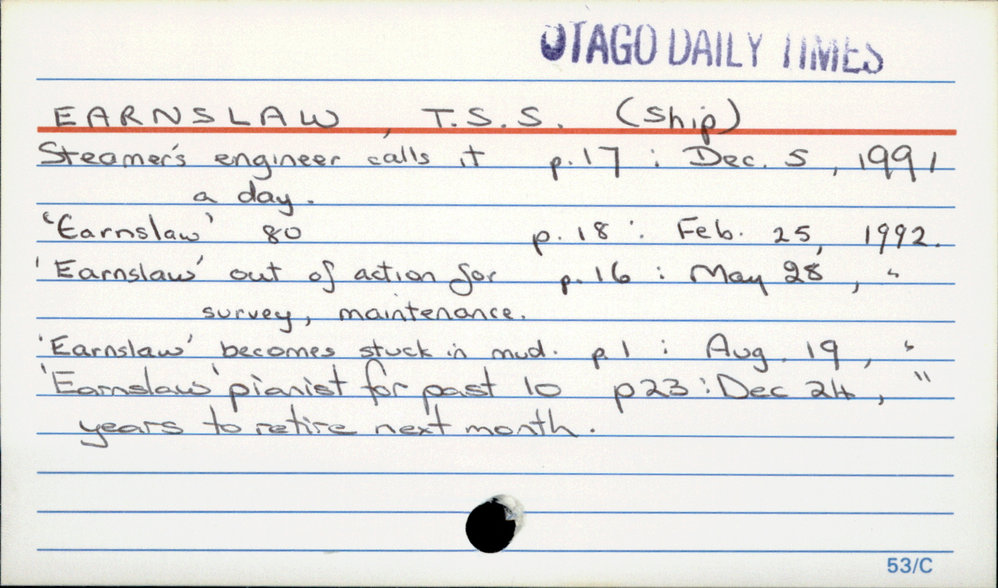 OTAGO DAILY TIMES
EARNSLAW, T.S.S. (Ship)
Steamer's engineer calls it p.17 : Dec. 5, 1991
a day.
'Earnslaw' 80 p.18 : Feb. 25, 1992.
'Earnslaw' out of action for p.16 : May 28, "
survey, maintenance.
'Earnslaw' becomes stuck in mud. p.1 : Aug. 19, "
'Earnslaw' pianist for past 10 p23 : Dec 24, "
years to retire next month.
53/C